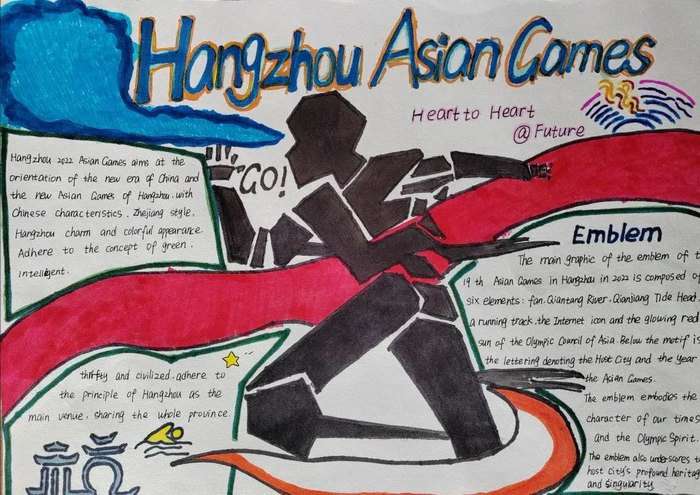 Hangzhou Asian Games
Heart to Heart
@ Future
GO!
Hangzhou 2022 Asian Games aims at the
orientation of the new era of China and
the new Asian Games of Hangzhou. with
Chinese characteristics. Zhejiang style.
Hangzhou charm and colorful appearance
Adhere to the concept of green.
intelligent.
thrifty and civilized. adhere to
the principle of Hangzhou as the
main venue. sharing the whole province.
Emblem
The main graphic of the emblem of t
19 th Asian Games in Hangzhou in 2022 is composed of
six elements: fan. Qiantang River. Qianjiang Tide Head.
a running track. the Internet icon and the glowing red
sun of the Olympic Council of Asia. Below the motif is
the lettering denoting the Host City and the Year
the Asian Games.
The emblem embodies the
character of our times
and the Olympic Spirit.
The emblem also underscores t
host City's profound heritag
and singularity